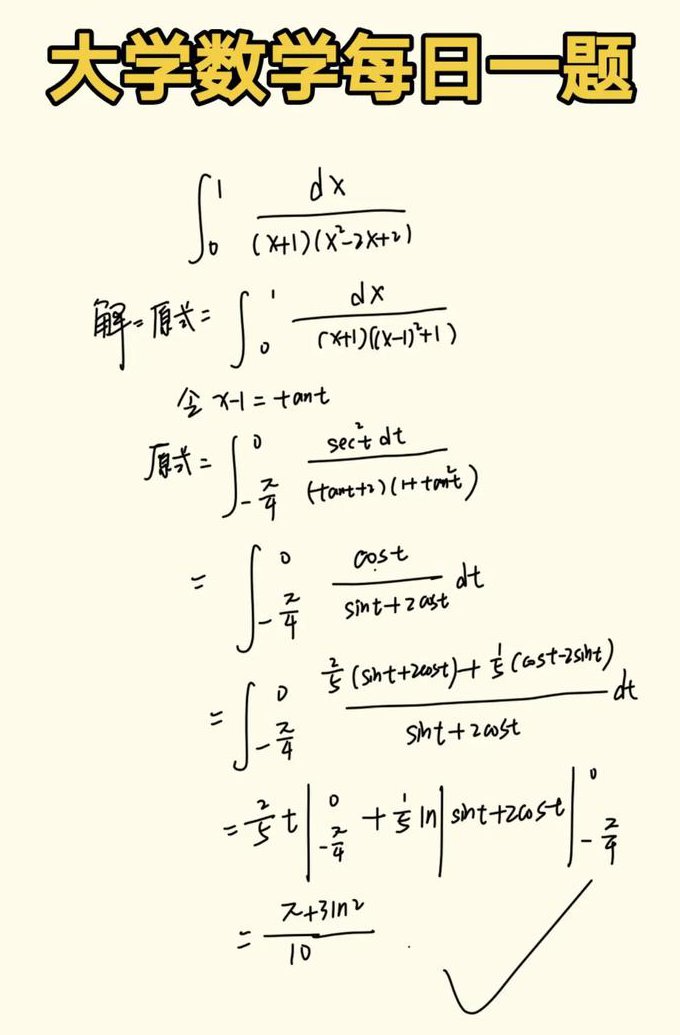 大学数学每日一题
∫₀¹ dx / ((x+1)(x²-2x+2))
解=原式= ∫₀¹ dx / ((x+1)((x-1)²+1))
令 x-1=tant
原式= ∫_{-π/4}^{0} sec²t dt / ((tant+2)(1+tan²t))
= ∫_{-π/4}^{0} cost / (sint+2cost) dt
= ∫_{-π/4}^{0} (2/5 (sint+2cost)+1/5 (cost-2sint)) / (sint+2cost) dt
= 2/5 t |_{-π/4}^{0} + 1/5 ln|sint+2cost| |_{-π/4}^{0}
= (π+3ln2) / 10 .